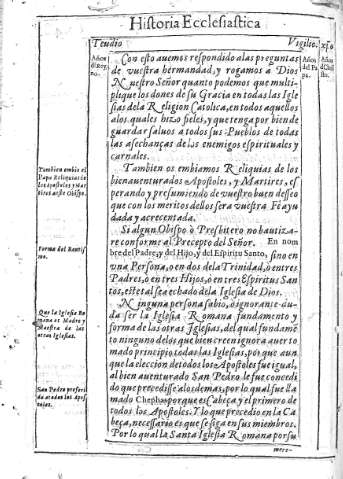 Historia Ecclesiastica
Teudio
Vigilio.
Años
d'Roy
no.
Años
del Pa
pa.
Años
d'Chri
sto.
Con esto auemos respondido alas preguntas
de vuestra hermandad, y rogamos a Dios
Nuestro Señor quanto podemos que multi-
plique los dones de su Gracia en todas las Igle
sias dela Religion Catolica, en todos aquellos
alos quales hizo fieles, y que tenga por bien de
guardar saluos a todos sus Pueblos de todas
las asechanças de los enemigos espirituales y
carnales.
Tambien embia el
Papa Reliquias de
los Apostoles y Mar
tires a este Obispo.
Tambien os embiamos Reliquias de los
bienauenturados Apostoles, y Martires, es
perando y presumiendo de vuestro buen desseo
que con los meritos dellos sera vuestra Fe ayu
dada y acrecentada.
Si algun Obispo o Presbitero no bautiza-
re conforme al Precepto del Señor. En nom
bre del Padre, y del Hijo, y del Espiritu Santo, sino en
vna Persona, o en dos de la Trinidad, o en tres
Padres, o en tres Hijos, o en tres Espiritus San
tos, este tal sea echado de la Iglesia de Dios.
Forma del Bautis
mo.
Ninguna persona sabio, o ignorante du-
da ser la Iglesia Romana fundamento y
forma de las otras Iglesias, del qual fundamē
to ninguno de los que bien creen ignora auer to
mado principio todas las Iglesias, porque aun
que la eleccion de todos los Apostoles fue igual,
al bienauenturado San Pedro le fue concedi
do que precediesse a los demas, por lo qual fue lla
mado Chephas porque es Cabeça y el primero de
todos los Apostoles. Y lo que precedio en la Ca
beça, necessario es que se siga en sus miembros.
Por lo qual la Santa Iglesia Romana por su
Que la Iglesia Ro
mana es Madre y
Maestra de las
otras Iglesias.
San Pedro preferi
do a todos los Apos
toles.
mere-